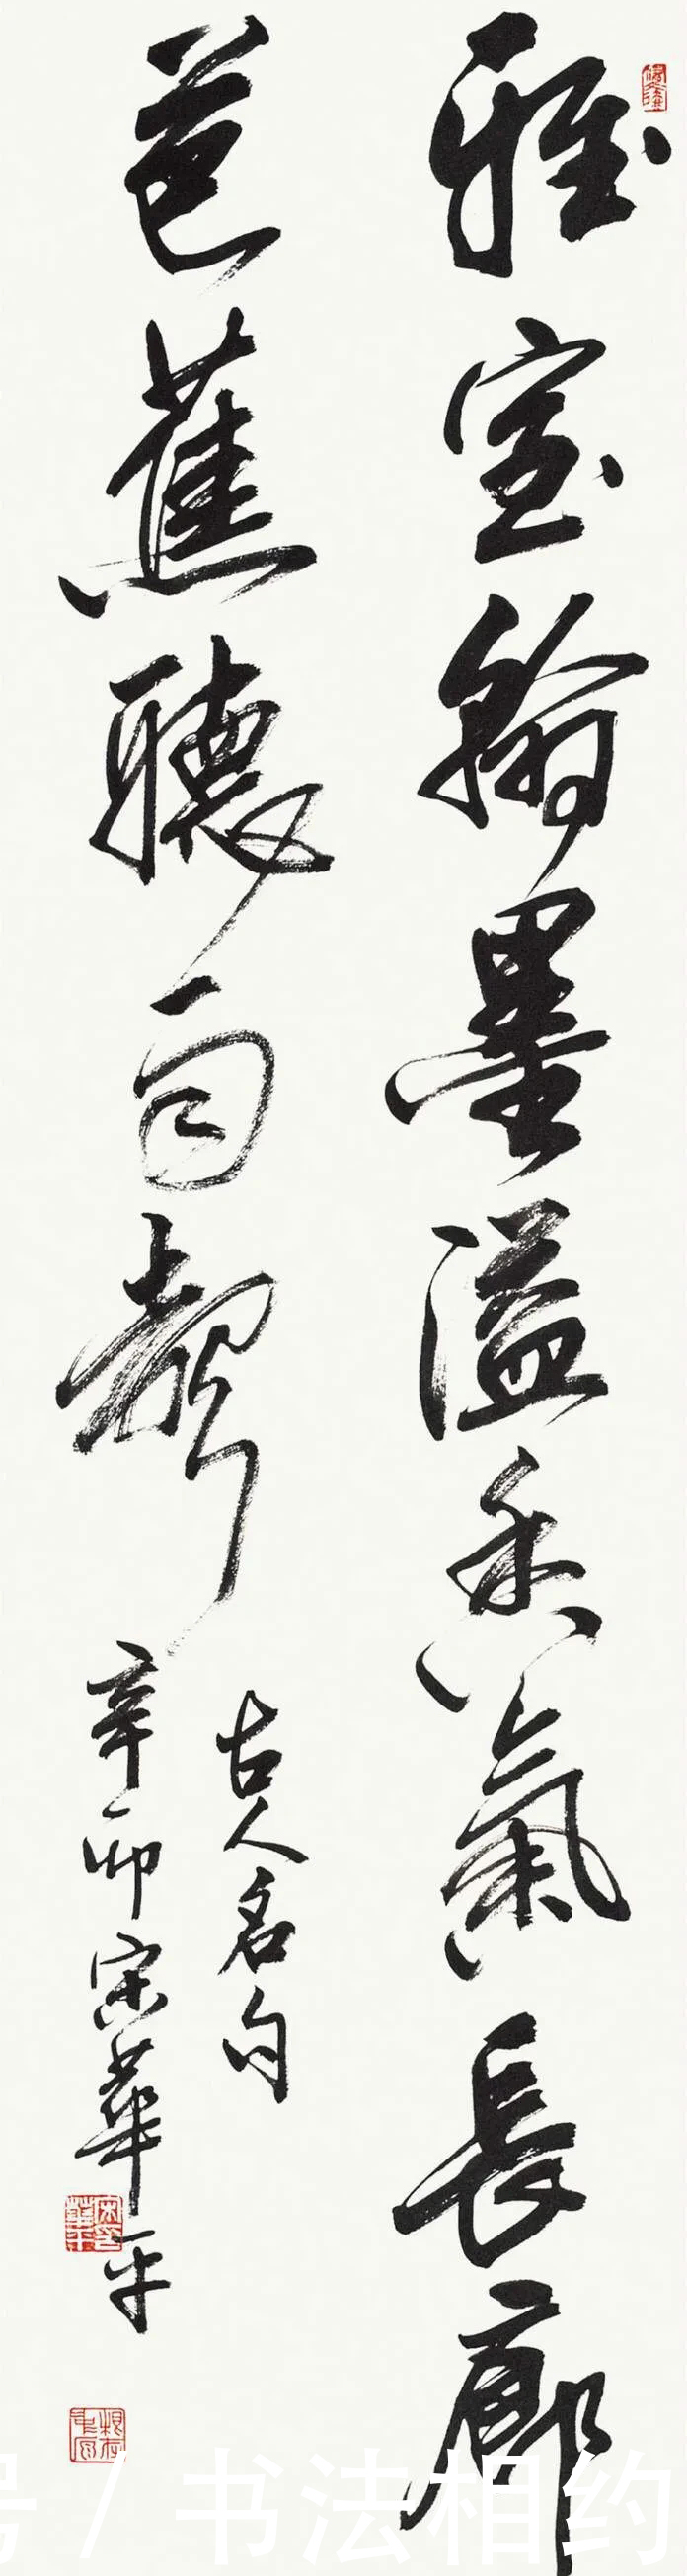 雅室翰墨溢香氣長廊
芭蕉聽雨聲
古人名句
辛卯宋華平
号/书法相约